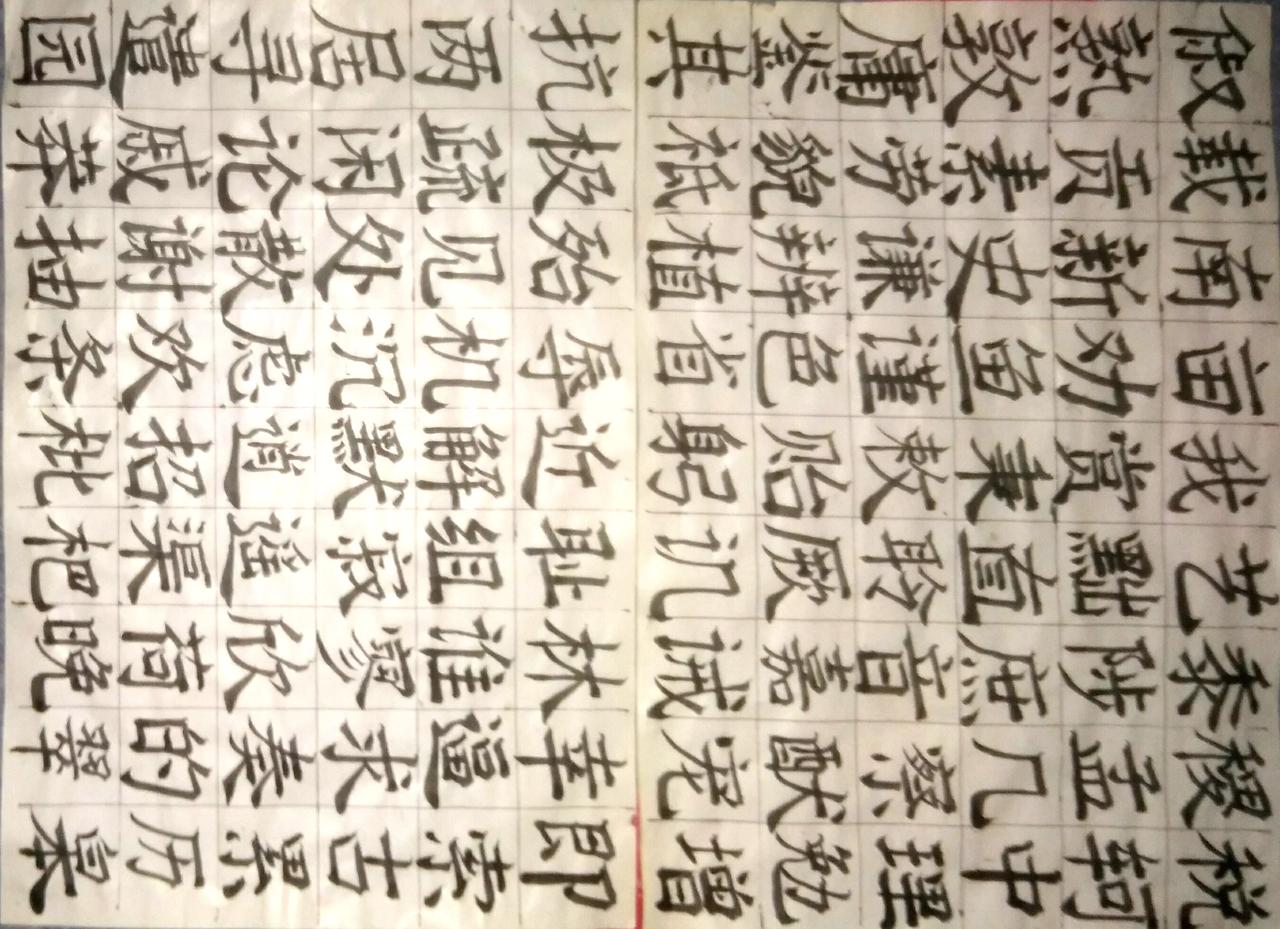 俶载南亩我艺黍稷税
熟贡新劝赏黜陟孟轲
敦素史鱼秉直庶几中
庸劳谦谨敕聆音察理
鉴貌辨色贻厥嘉猷勉
其祗植省躬讥诫宠增
抗极殆辱近耻林幸即
两疏见机解组谁逼索
居闲处沉默寂寥求古
寻论散虑逍遥欣奏累
遣戚谢欢招渠荷的历
园莽抽条枇杷晚翠